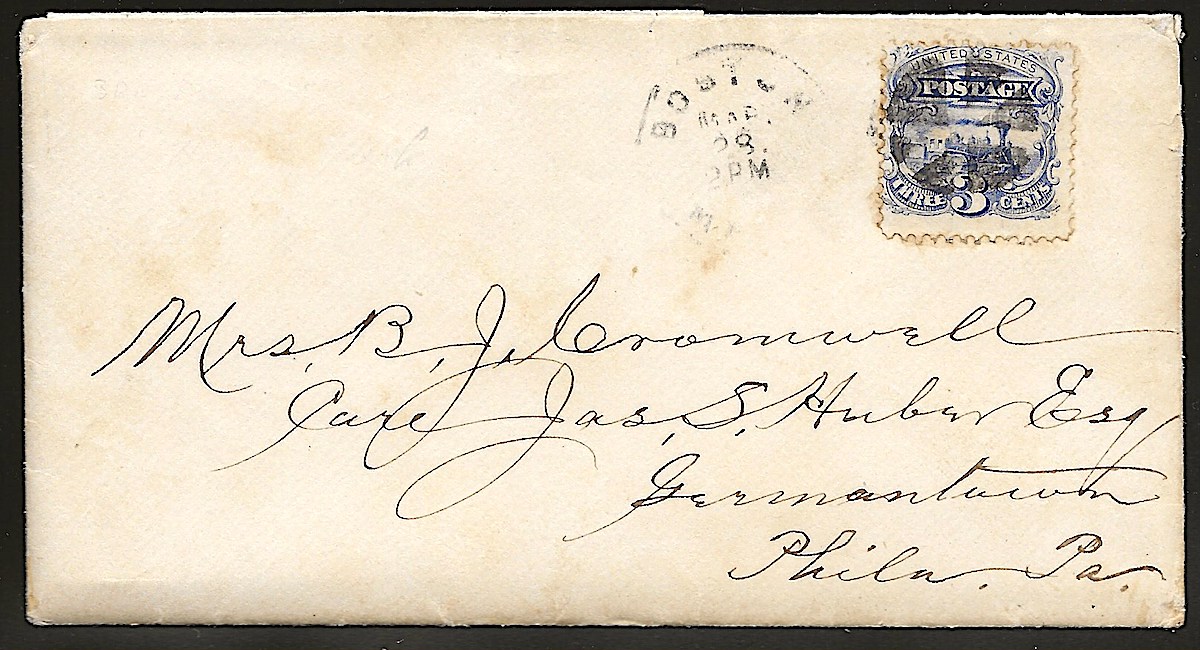 BOSTON
MAR.
28.
2PM
UNITED STATES
POSTAGE
THREE 3 CENTS
Mrs. B. J. Cromwell
Care Jas. S. Huber Esq
Germantown
Phila. Pa.